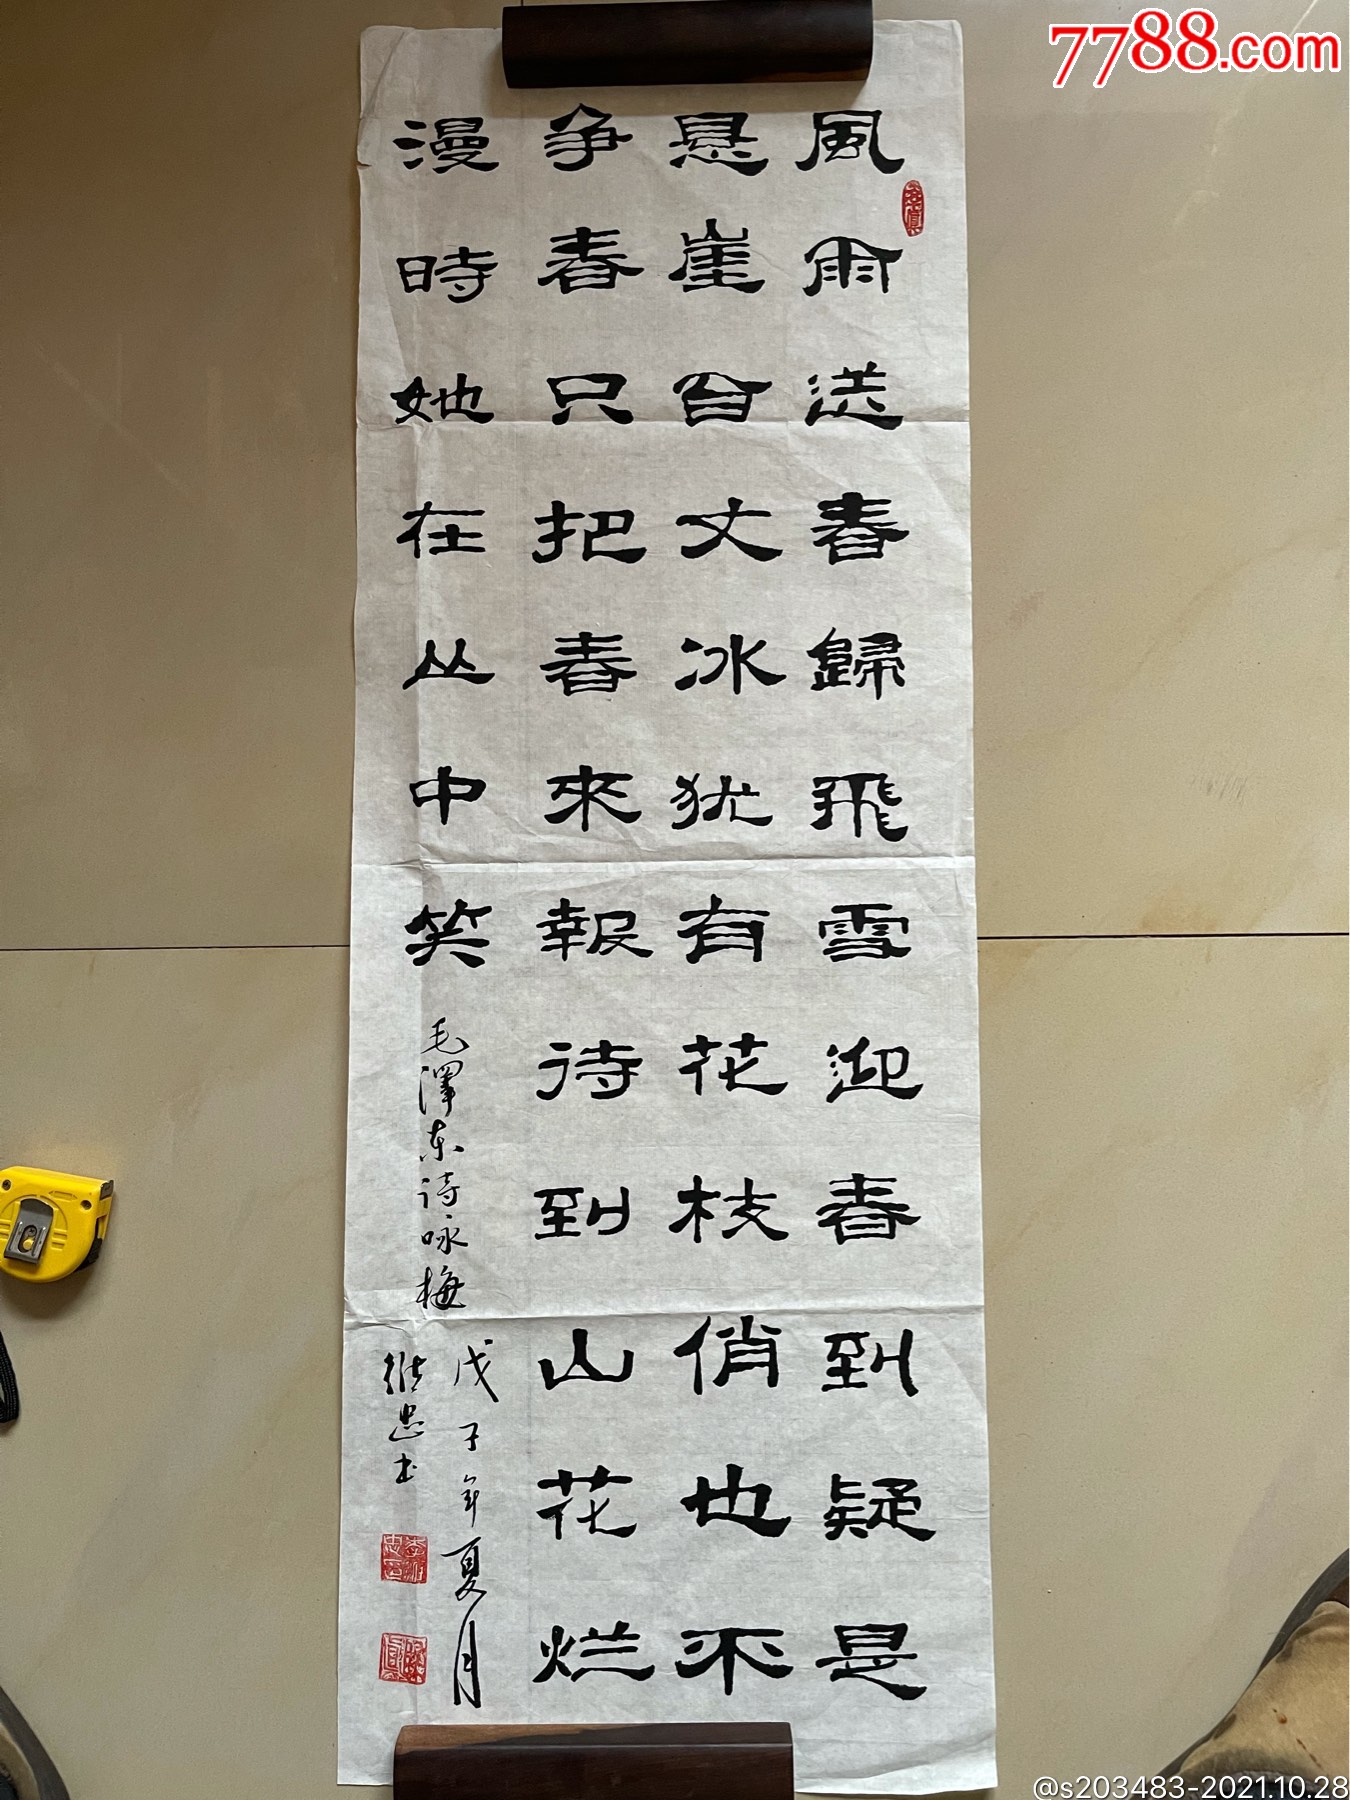 7788.com
風雨送春歸飛雪迎春到疑是
悬崖百丈冰犹有花枝俏也不
争春只把春來報待到山花烂
漫時她在丛中笑
毛澤东诗咏梅
戊子年夏月
忠书
@s203483-2021.10.28